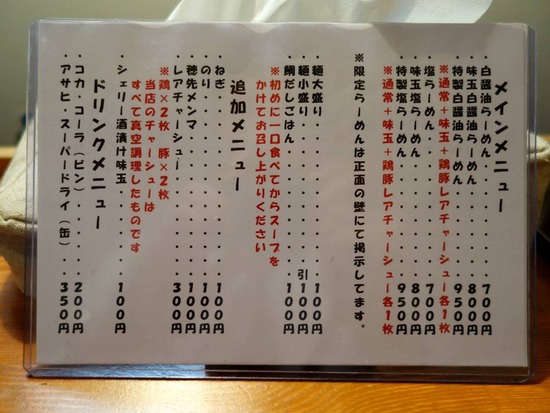 メインメニュー
白醤油らーめん・・・・・・・・700円
味玉白醤油らーめん・・・・・・800円
特製白醤油らーめん・・・・・・950円
※通常＋味玉＋鶏豚レアチャーシュー各1枚
塩らーめん・・・・・・・・・・700円
味玉塩らーめん・・・・・・・・800円
特製塩らーめん・・・・・・・・950円
※通常＋味玉＋鶏豚レアチャーシュー各1枚
※限定らーめんは正面の壁にて掲示してます。
麺大盛り・・・・・・・・・・・100円
麺小盛り・・・・・・・・・・引100円
鯛だしごはん・・・・・・・・・100円
※初めに一口食べてからスープを
かけてお召し上がりください
追加メニュー
ねぎ・・・・・・・・・・・・・100円
のり・・・・・・・・・・・・・100円
穂先メンマ・・・・・・・・・・100円
レアチャーシュー・・・・・・・300円
※鶏×2枚 豚×2枚
当店のチャーシューは
すべて真空調理したものです
シェリー酒漬け味玉・・・・・・100円
ドリンクメニュー
コカ・コーラ（ビン）・・・・・200円
アサヒ・スーパードライ（缶）・・350円